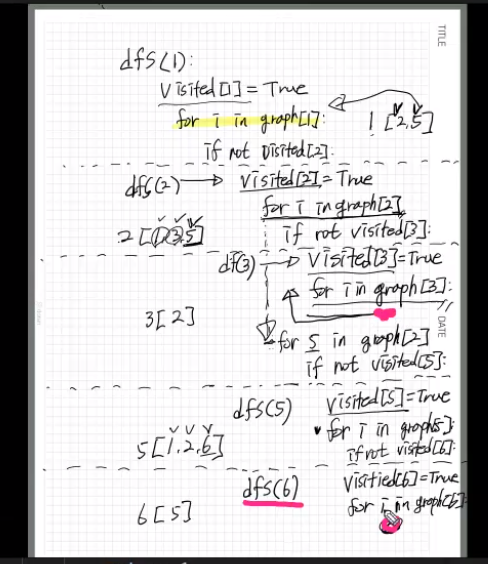 TITLE
dfs(1):
visited[1] = True
for i in graph[1]:
1 [2,5]
if not visited[2]:
dfs(2) → visited[2] = True
for i in graph[2]
2 [1,3,5]
if not visited[3]:
df(3) → visited[3]=True
for i in graph[3]:
3 [2]
DATE
for 5 in graph[2]
if not visited[5]:
dfs(5)
visited[5]=True
for i in graph[5]:
5 [1,2,6]
if not visited[6]:
dfs(6)
visitied[6]=True
for i in graph[6]:
6 [5]